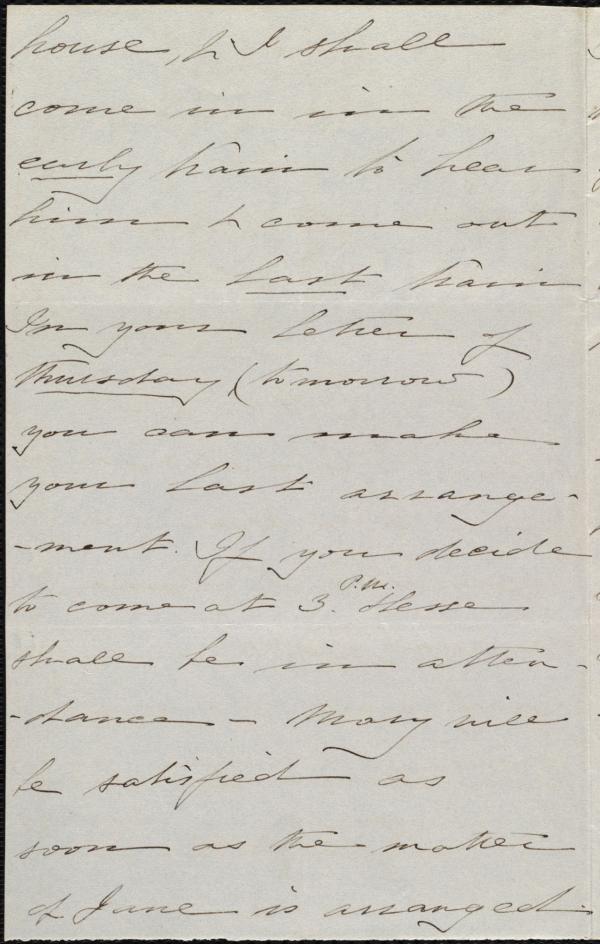 house, & I shall
come in in the
early train to hear
him & come out
in the last train
In your letter of
Thursday (tomorrow)
you can make
your last arrange-
-ment. If you decide
to come at 3. P.M. Hesse
shall be in atten-
-dance - Mary will
be satisfied as
soon as the matter
of June is arranged.